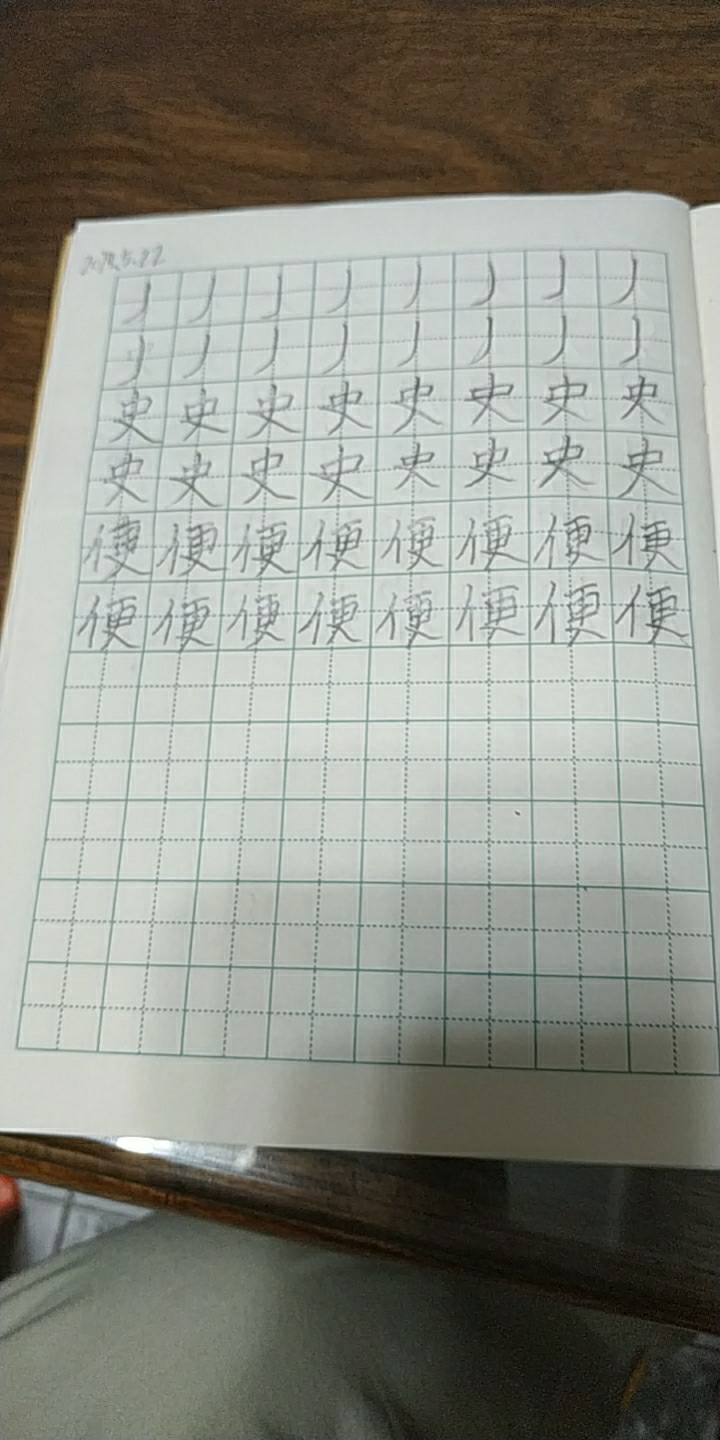 丿丿丿丿丿丿丿丿
丿丿丿丿丿丿丿丿
史史史史史史史史
史史史史史史史史
便便便便便便便便
便便便便便便便便